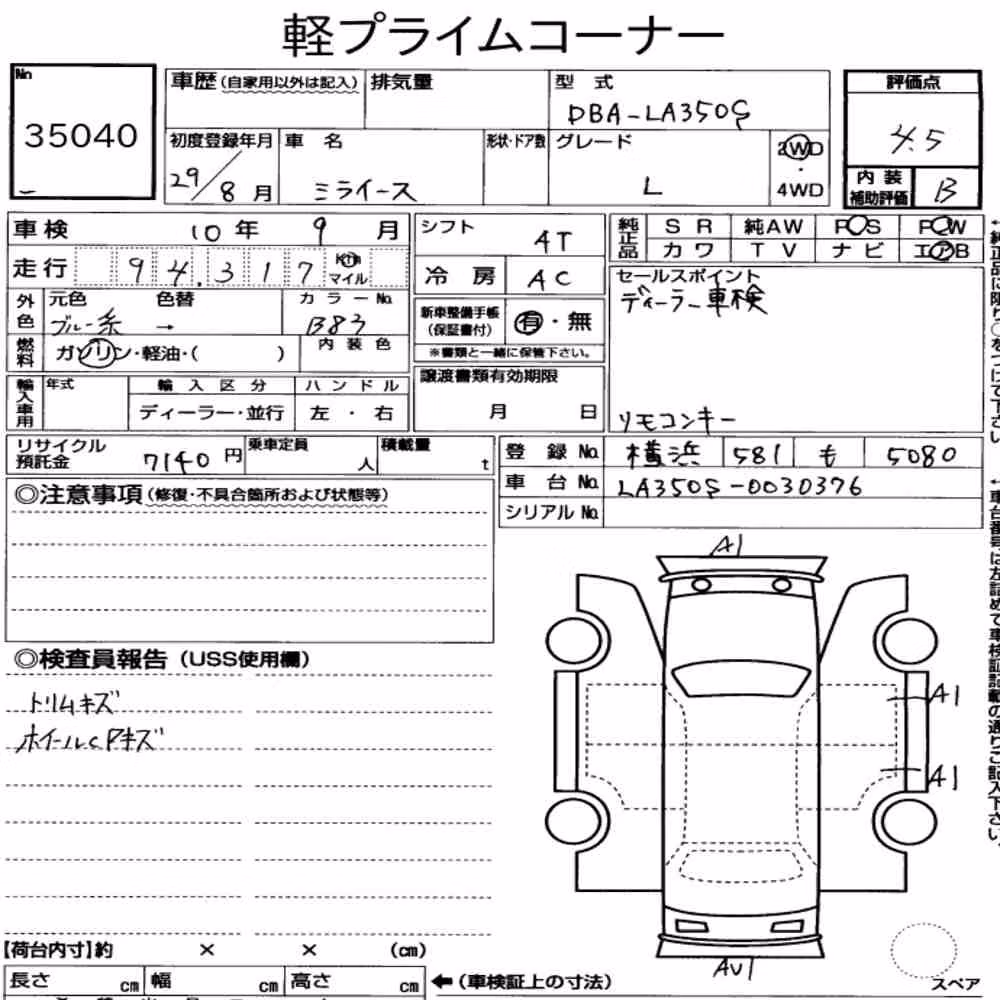 軽プライムコーナー
No
35040
車歴(自家用以外は記入) 排気量 型式
DBA-LA350S
評価点
4.5
初度登録年月 車名 形状・ドア数 グレード 2WD
29/8月 ミライース L ・ 4WD
内装補助評価 B
車検 10年 9月
走行 94,317 Km マイル
外色 元色 色替 カラーNo.
ブルー系 → B83
燃料 ガソリン・軽油・( ) 内装色
輸入車用 年式 輸入区分 ハンドル
ディーラー・並行 左・右
シフト AT
冷房 AC
新車整備手帳(保証書付) 有・無
※書類と一緒に保管下さい。
譲渡書類有効期限
月 日
純正品 SR 純AW PS PW
カワ TV ナビ エアB
セールスポイント
ディーラー車検
リモコンキー
リサイクル預託金 7140円 乗車定員 人 積載量 t
登録No. 横浜 581 も 5080
車台No. LA350S-0030376
シリアルNo.
◎注意事項(修復・不具合箇所および状態等)
◎検査員報告(USS使用欄)
トリムキズ
ホイールCPキズ
A1
A1
A1
AU1
【荷台内寸】約 × × (cm)
長さ cm 幅 cm 高さ cm ←(車検証上の寸法)
スペア
←純正品に限り○をつけて下さい
←車台番号は左詰めで車検証記載の通りご記入下さい。